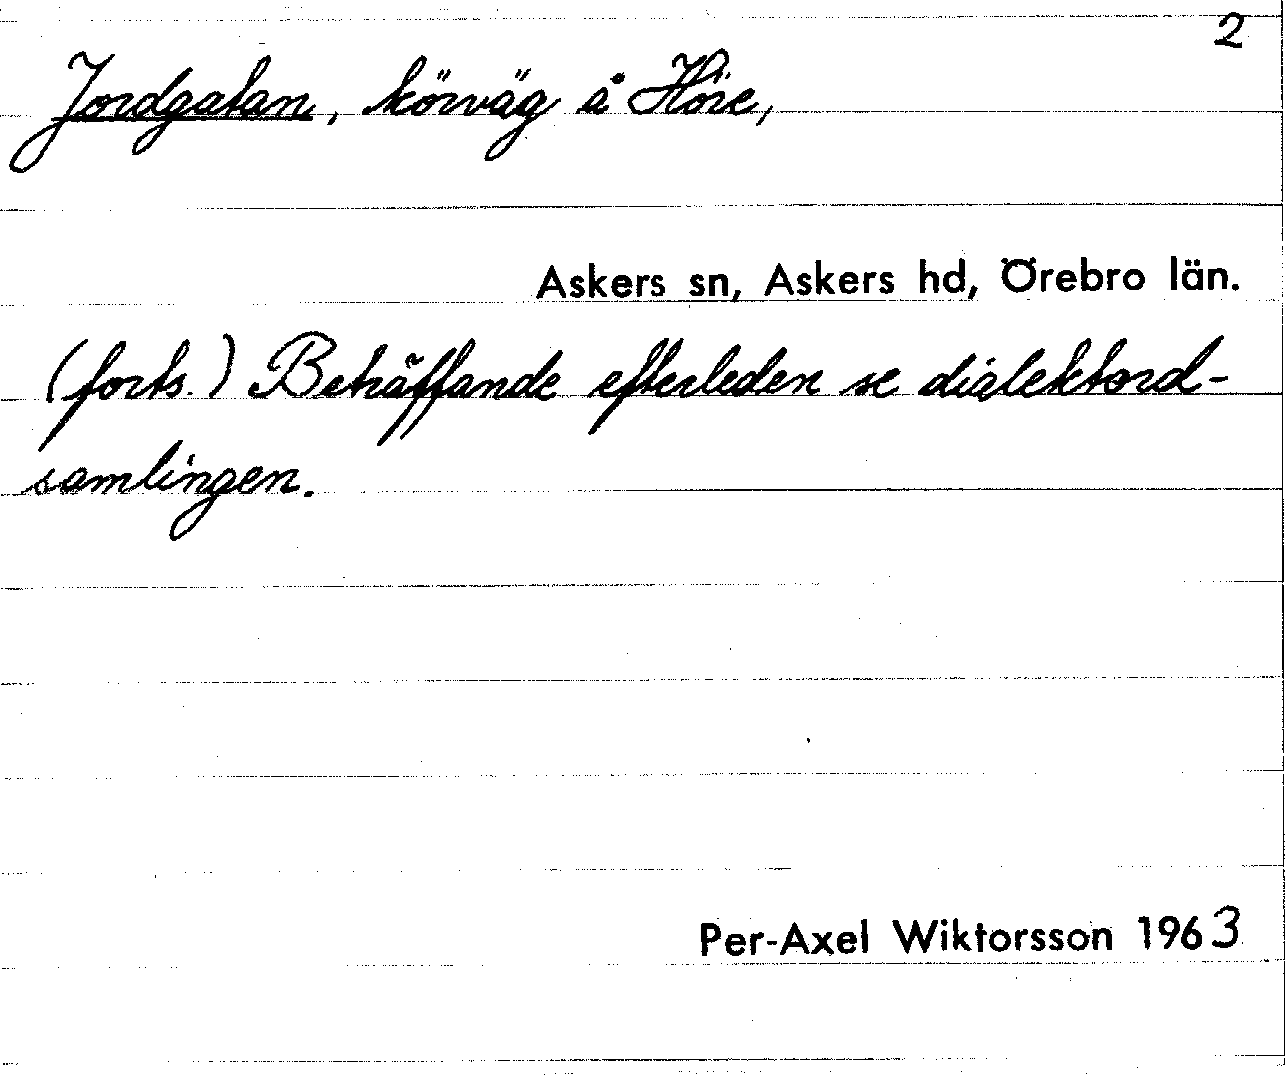 2
Jordgatan, körväg å Höre,
Askers sn, Askers hd, Örebro län.
(forts.) Beträffande efterleden se dialektord-
samlingen.
Per-Axel Wiktorsson 1963